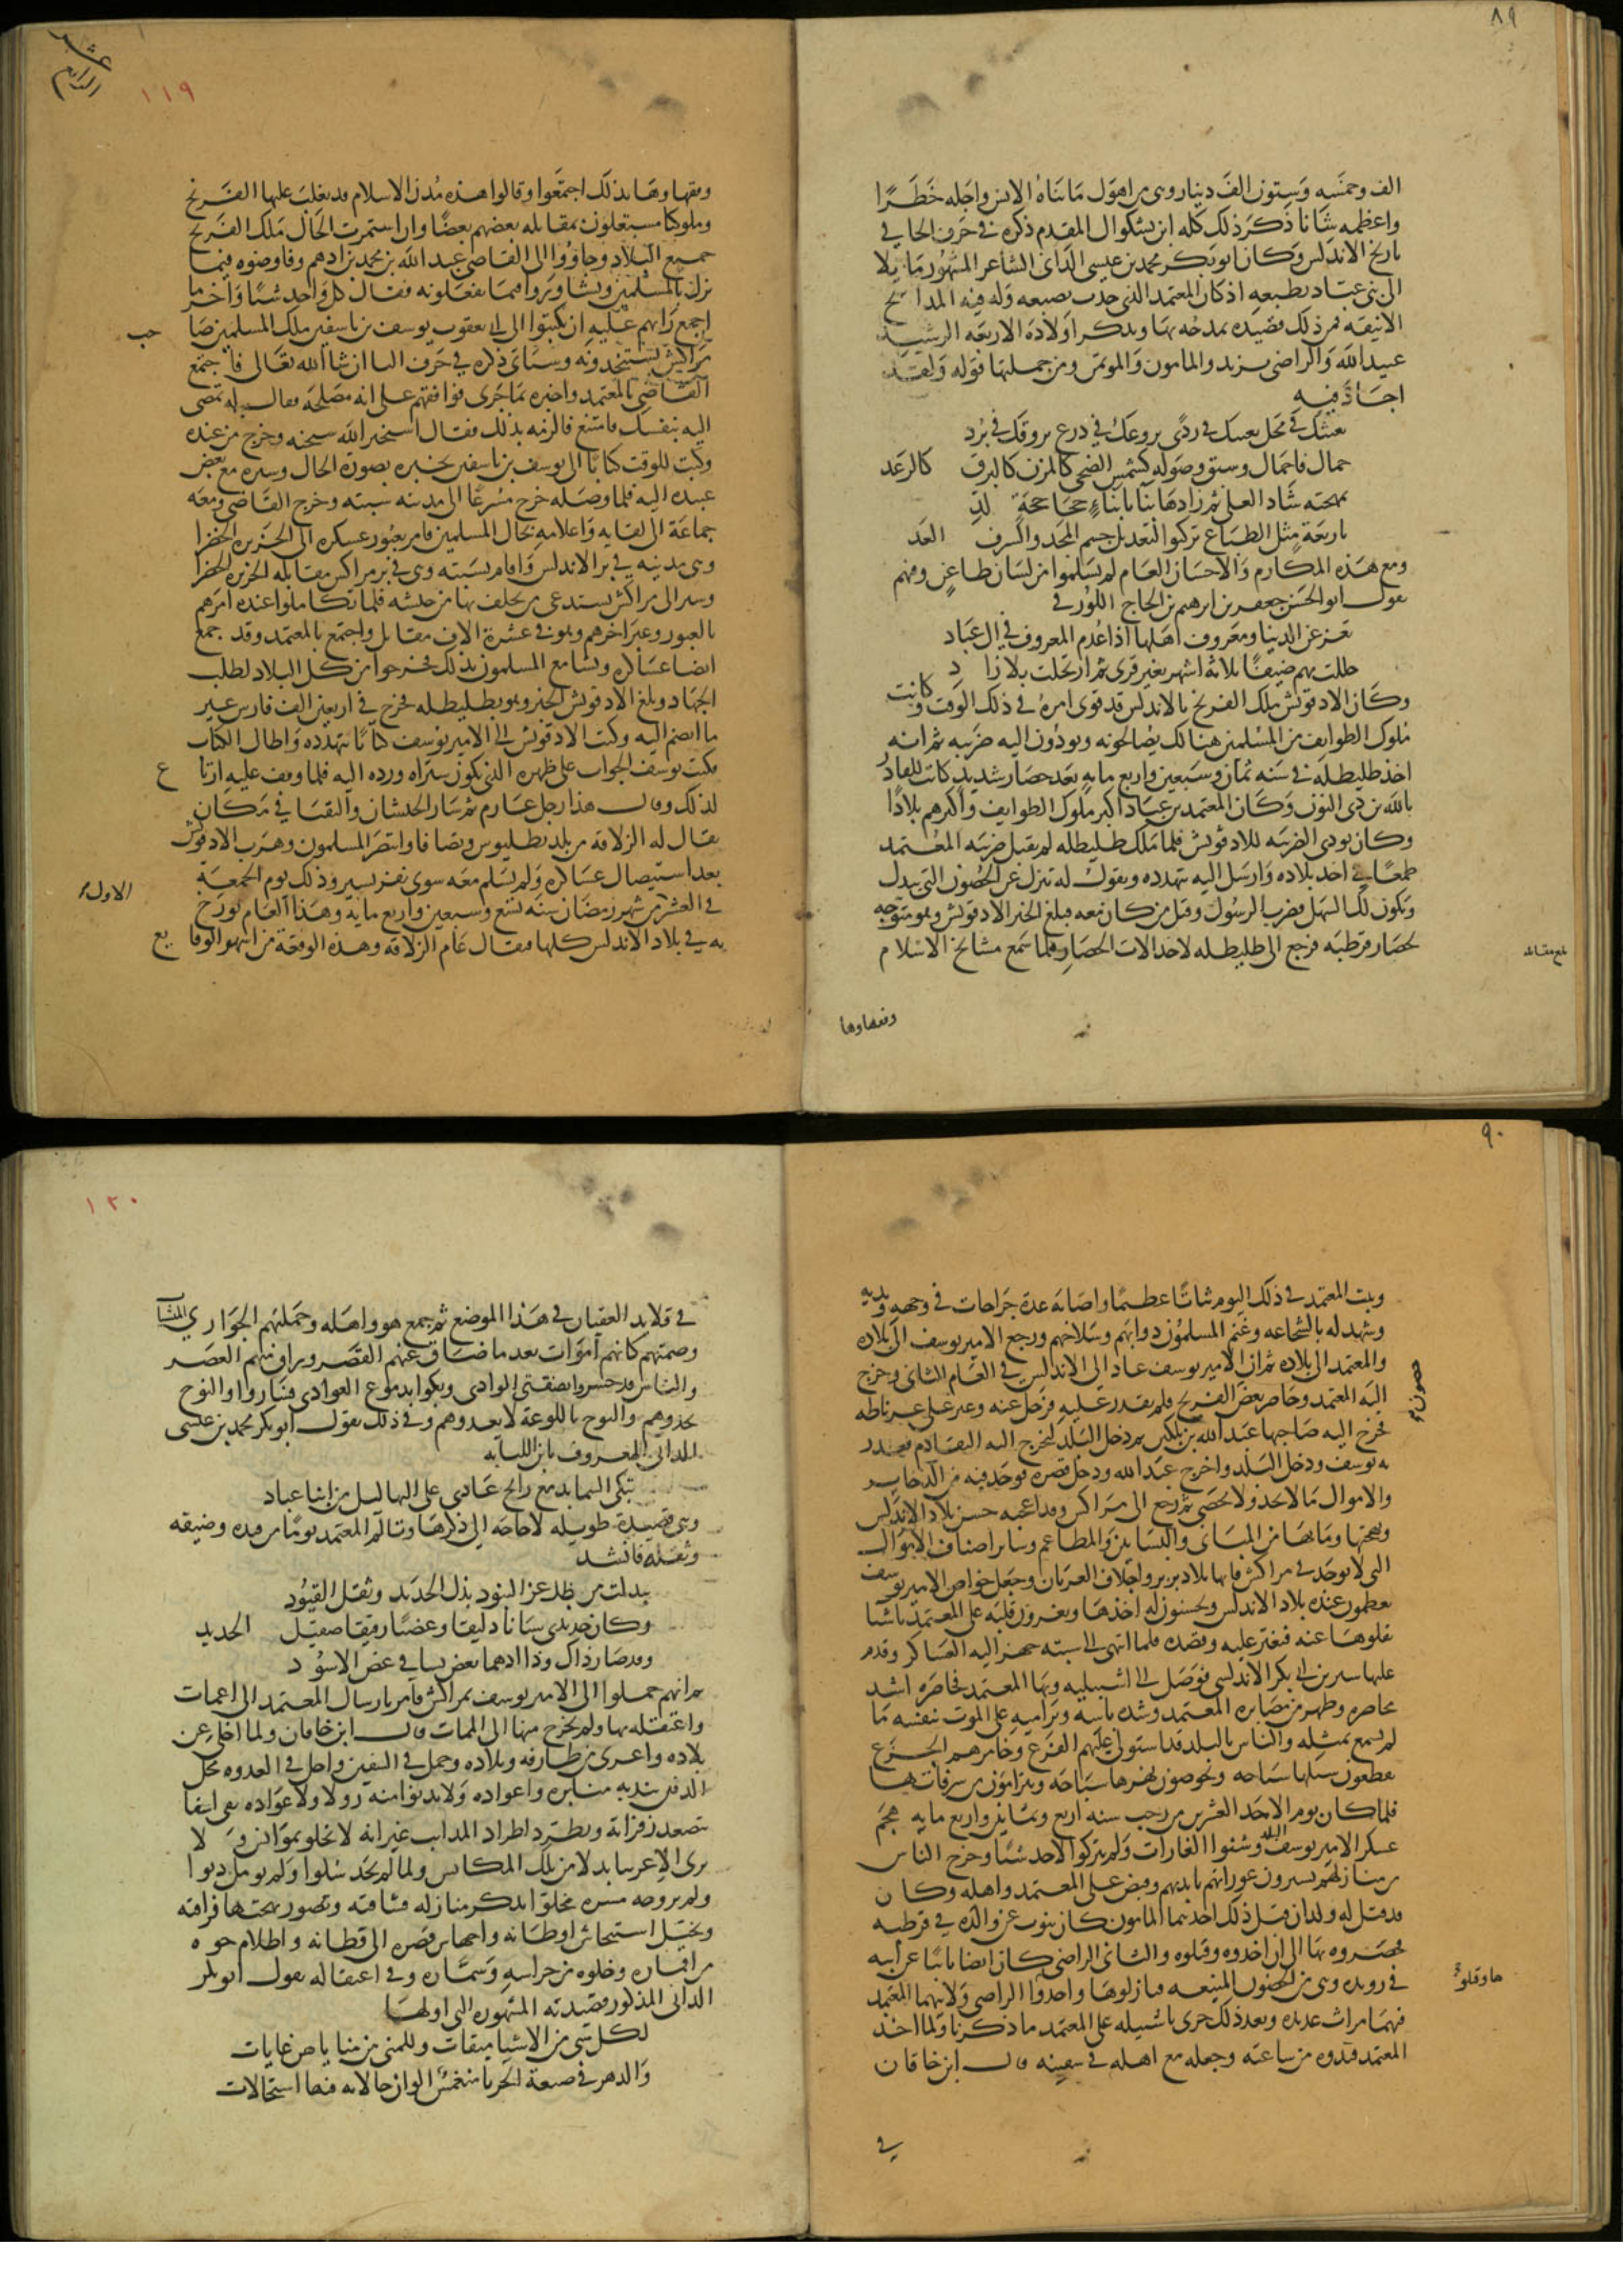 ٨٩
الف وخمسه وستون الف دينار وهى من اهول ما بناه الانس واجله خطرًا
واعظمه شانا ذكر ذلك كله ابن بشكوال المقدم ذكره فى حرف الخا فى
تاريخ الاندلس وكان ابو بكر محمد بن عيسى الدانى الشاعر المشهور مايلا
الى بنى عباد بطبعه اذ كان المعتمد الذى جذب بضبعه وله فيه المدايح
الانيقه فمن ذلك قصيده يمدحه بها ويذكر اولاده الاربعه الرشيد
عبيد الله والراضى يزيد والمامون والموتمن ومن جملتها قوله ولقد
اجاد فيه
يعينك فى محل يعينك فى ردًى يروعك فى درع يروقك فى برد
جمال فاجمال وسبق وصوله كشمس الضحى كالمزن كالبرق كالرعد
بمهجته شاد العلى ثم زادها بنا بابناءٍ جحاجحةٍ لد
باربعة مثل الطباع تركبوا لتعديل جسم المجد والشرف العد
ومع هذه المكارم والاحسان العام لم يسلموا من لسان طاعن ومنهم
يقول ابو الحسن جعفر بن ابرهيم بن الحاج اللورقى
تعز عن الدنيا ومعروف اهلها اذا عدم المعروف فى ال عباد
حللت بهم ضيفًا ثلاثه اشهر بغير قرى ثم ارتحلت بلا زاد
وكان الادفونش ملك الفرنج بالاندلس قد قوى امره فى ذلك الوقت وكانت
ملوك الطوايف من المسلمين هنالك يصالحونه ويودون اليه ضريبه ثم انه
اخذ طليطله فى سنه ثمان وسبعين واربع مايه بعد حصار شديد كانت للقادر
بالله بن ذى النون وكان المعتمد بن عباد اكبر ملوك الطوايف واكبرهم بلادًا
وكان يودى الضريبه للادفونش فلما ملك طليطله لم يقبل ضريبه المعتمد
طمعًا فى اخذ بلاده وارسل اليه يتهدده ويقول له تنزل عن الحصون التى بيدك
وتكون لك السهل فضرب الرسول وقتل من كان معه فبلغ الخبر الادفونش وهو متوجه
لحصار قرطبه فرجع الى طليطله لاخذ الات الحصار فلما سمع مشايخ الاسلام
بلغ مقابله
وفقهاوها
١١٩
وفقهاوها بذلك اجتمعوا وقالوا هذه مدن الاسلام قد يغلب عليها الفرنج
وملوكنا مشتغلون بمقابله بعضهم بعضًا وان استمرت الحال ملك الفرنج
جميع البلاد وجاؤوا الى القاضى عبد الله بن محمد بن ادهم وفاوضوه فيما
نزل بالمسلمين وتشاوروا فيما يفعلونه فقال كل واحد شيئًا واخر ما
اجمع رايهم عليه ان يكتبوا الى ابى يعقوب يوسف بن تاشفين ملك الملثمين صاحب
مراكش يستنجدونه وسياتى ذكره فى حرف اليا ان شا الله تعالى فاجتمع
القاضى بالمعتمد واخبره بما جرى فوافقهم على انه مصلحه وقال له تمضى
اليه بنفسك فامتنع فالزمه بذلك فقال استخير الله سبحنه وخرج من عنده
وكتب للوقت كتابًا الى يوسف بن تاشفين يخبره بصوره الحال وسيره مع بعض
عبيده اليه فلما وصله خرج مسرعًا الى مدينه سبته وخرج القاضى ومعه
جماعة الى لقايه واعلامه بحال المسلمين فامر بعبور عسكره الى الجزيره الخضرا
وهى مدينه فى بر الاندلس واقام بسبته وهى فى بر مراكش مقابله الجزيره الخضرا
وسير الى مراكش يستدعى من تخلف بها من جيشه فلما تكاملوا عنده امرهم
بالعبور وعبر اخرهم وهو فى عشرة الاف مقاتل واجتمع بالمعتمد وقد جمع
ايضا عساكره وتسامع المسلمون بذلك فخرجوا من كل البلاد لطلب
الجهاد وبلغ الادفونش الخبر وهو بطليطله فخرج فى اربعين الف فارس غير
ما انضم اليه وكتب الادفونش الى الامير يوسف كتابًا يتهدده واطال الكتاب
فكتب يوسف الجواب على ظهره الذى يكون ستراه ورده اليه فلما وقف عليه ارتاع
لذلك وقال هذا رجل عارم ثم سار الجيشان والتقيا فى مكان
يقال له الزلاقه من بلد بطليوس وتصافا وانتصر المسلمون وهرب الادفونش
بعد استيصال عساكره ولم يسلم معه سوى نفر يسير وذلك يوم الجمعة
فى العشر من شهر رمضان سنه تسع وسبعين واربع مايه وهذا العام يورخ
الاول
به فى بلاد الاندلس كلها فيقال عام الزلاقه وهذه الوقعة من اشهر الوقايع
٩٠
وثبت المعتمد فى ذلك اليوم ثباتًا عظيمًا واصابه عدة جراحات فى وجهه وبدنه
وشهد له بالشجاعه وغنم المسلمون دوابهم وسلاحهم ورجع الامير يوسف الى بلاده
والمعتمد الى بلاده ثم ان الامير يوسف عاد الى الاندلس فى العام الثانى وخرج
اليه المعتمد وحاصر بعض الفرنج فلم يقدر عليه فرحل عنه وعبر على غرناطه
حصون
فخرج اليه صاحبها عبد الله بن بلكين ثم دخل البلد ليخرج اليه التقادم فغدر
به يوسف ودخل البلد واخرج عبد الله ودخل قصره فوجد فيه من الذخاير
والاموال ما لا يحد ولا يحصى ثم رجع الى مراكش وقد اعجبه حسن بلاد الاندلس
وبهجتها وما بها من المبانى والبساتين والمطاعم وساير اصناف الاموال
التى لا توجد فى مراكش فانها بلاد بربر واجلاف العربان وجعل خواص الامير يوسف
يعظمون عنده بلاد الاندلس ويحسنون له اخذها ويغرون قلبه على المعتمد باشيا
نقلوها عنه فتغير عليه وقصده فلما انتهى الى سبته جهز اليه العساكر وقدم
عليها سير بن ابى بكر الاندلسى فوصل الى اشبيليه وبها المعتمد فحاصره اشد
محاصره وظهر من مصابره المعتمد وشده باسه وتراميه على الموت بنفسه ما
لم يسمع بمثله والناس بالبلد قد استولى عليهم الفزع وخامرهم الجزع
يقطعون سبلها سياحه ويخوضون نهرها سباحه ويترامون من شرفاتها
فلما كان يوم الاحد العشرين من رجب سنه اربع وثمانين واربع مايه هجم
عسكر الامير يوسف البلد وشنوا الغارات ولم يتركوا لاحد شيئًا وخرج الناس
من منازلهم يسترون عوراتهم بايديهم وقبض على المعتمد واهله وكان
قد قتل له ولدان قبل ذلك احدهما المامون كان ينوب عن والده فى قرطبه
فحصروه بها الى ان اخذوه وقتلوه والثانى الراضى كان ايضا نايبًا عن ابيه
فى رنده وهى من الحصون المنيعه فنازلوها واخذوا الراضى ولابيهما المعتمد
ها وقتلو
فيهما مراث عديده وبعد ذلك جرى باشبيله على المعتمد ما ذكرنا ولما اخذ
المعتمد قيدوه من ساعته وجعله مع اهله فى سفينه قال ابن خاقان
فى
١٢٠
فى قلايد العقيان فى هذا الموضع ثم جمع هو واهله وحملتهم الجوارى المنشآت
وضمتهم كانهم اموات بعد ما ضاق عنهم القصر وراق منهم العصر
والناس قد حشروا بضفتى الوادى وبكوا بدموع الغوادى فساروا والنوح
يحدوهم والبوح باللوعة لا يعدوهم وفى ذلك يقول ابو بكر محمد بن عيسى
الدانى المعروف بابن اللبانه
تبكى السما بدمع رايح غادى على البهاليل من ابنا عباد
وهى قصيدة طويله لا حاجه الى ذكرها وتالم المعتمد يومًا من قيده وضيقه
وثقله فانشد
تبدلت من ظل عز البنود بذل الحديد وثقل القيود
وكان حديدى سنانا ذليقا وعضبًا رقيقا صقيل الحديد
وقد صار ذاك وذا ادهما يعض بساقى عض الاسود
ثم انهم حملوا الى الامير يوسف بمراكش فامر بارسال المعتمد الى اغمات
واعتقله بها ولم يخرج منها الى الممات قال ابن خاقان ولما اجلى عن
بلاده واعرى من طارفه وتلاده وحمل فى السفين واحل فى العدوه محل
الدفين تندبه منابره واعواده ولا يدنو منه زواره ولا عواده بقى اسفا
تتصعد زفراته وتطرد اطراد المذانب عبراته لا يخلو بموانس ولا
يرى الا غريبا بدلا من تلك المكانس ولما لم يجد سلوا ولم يومل دنوا
ولم ير وجه مسره مجلوا تذكر منازله فشاقته وتصور بهجتها فراقته
وتخيل استيحاش اوطانه واجهاش قصره الى قطانه واظلام جوه
من اقماره وخلوه من حراسه وسماره وفى اعتقاله يقول ابو بكر
الدانى المذكور قصيدته المشهوره التى اولها
لكل شى من الاشيا ميقات وللمنى من مناياهن غايات
والدهر فى صبغة الحربا منغمس الوان حالاته فيها استحالات